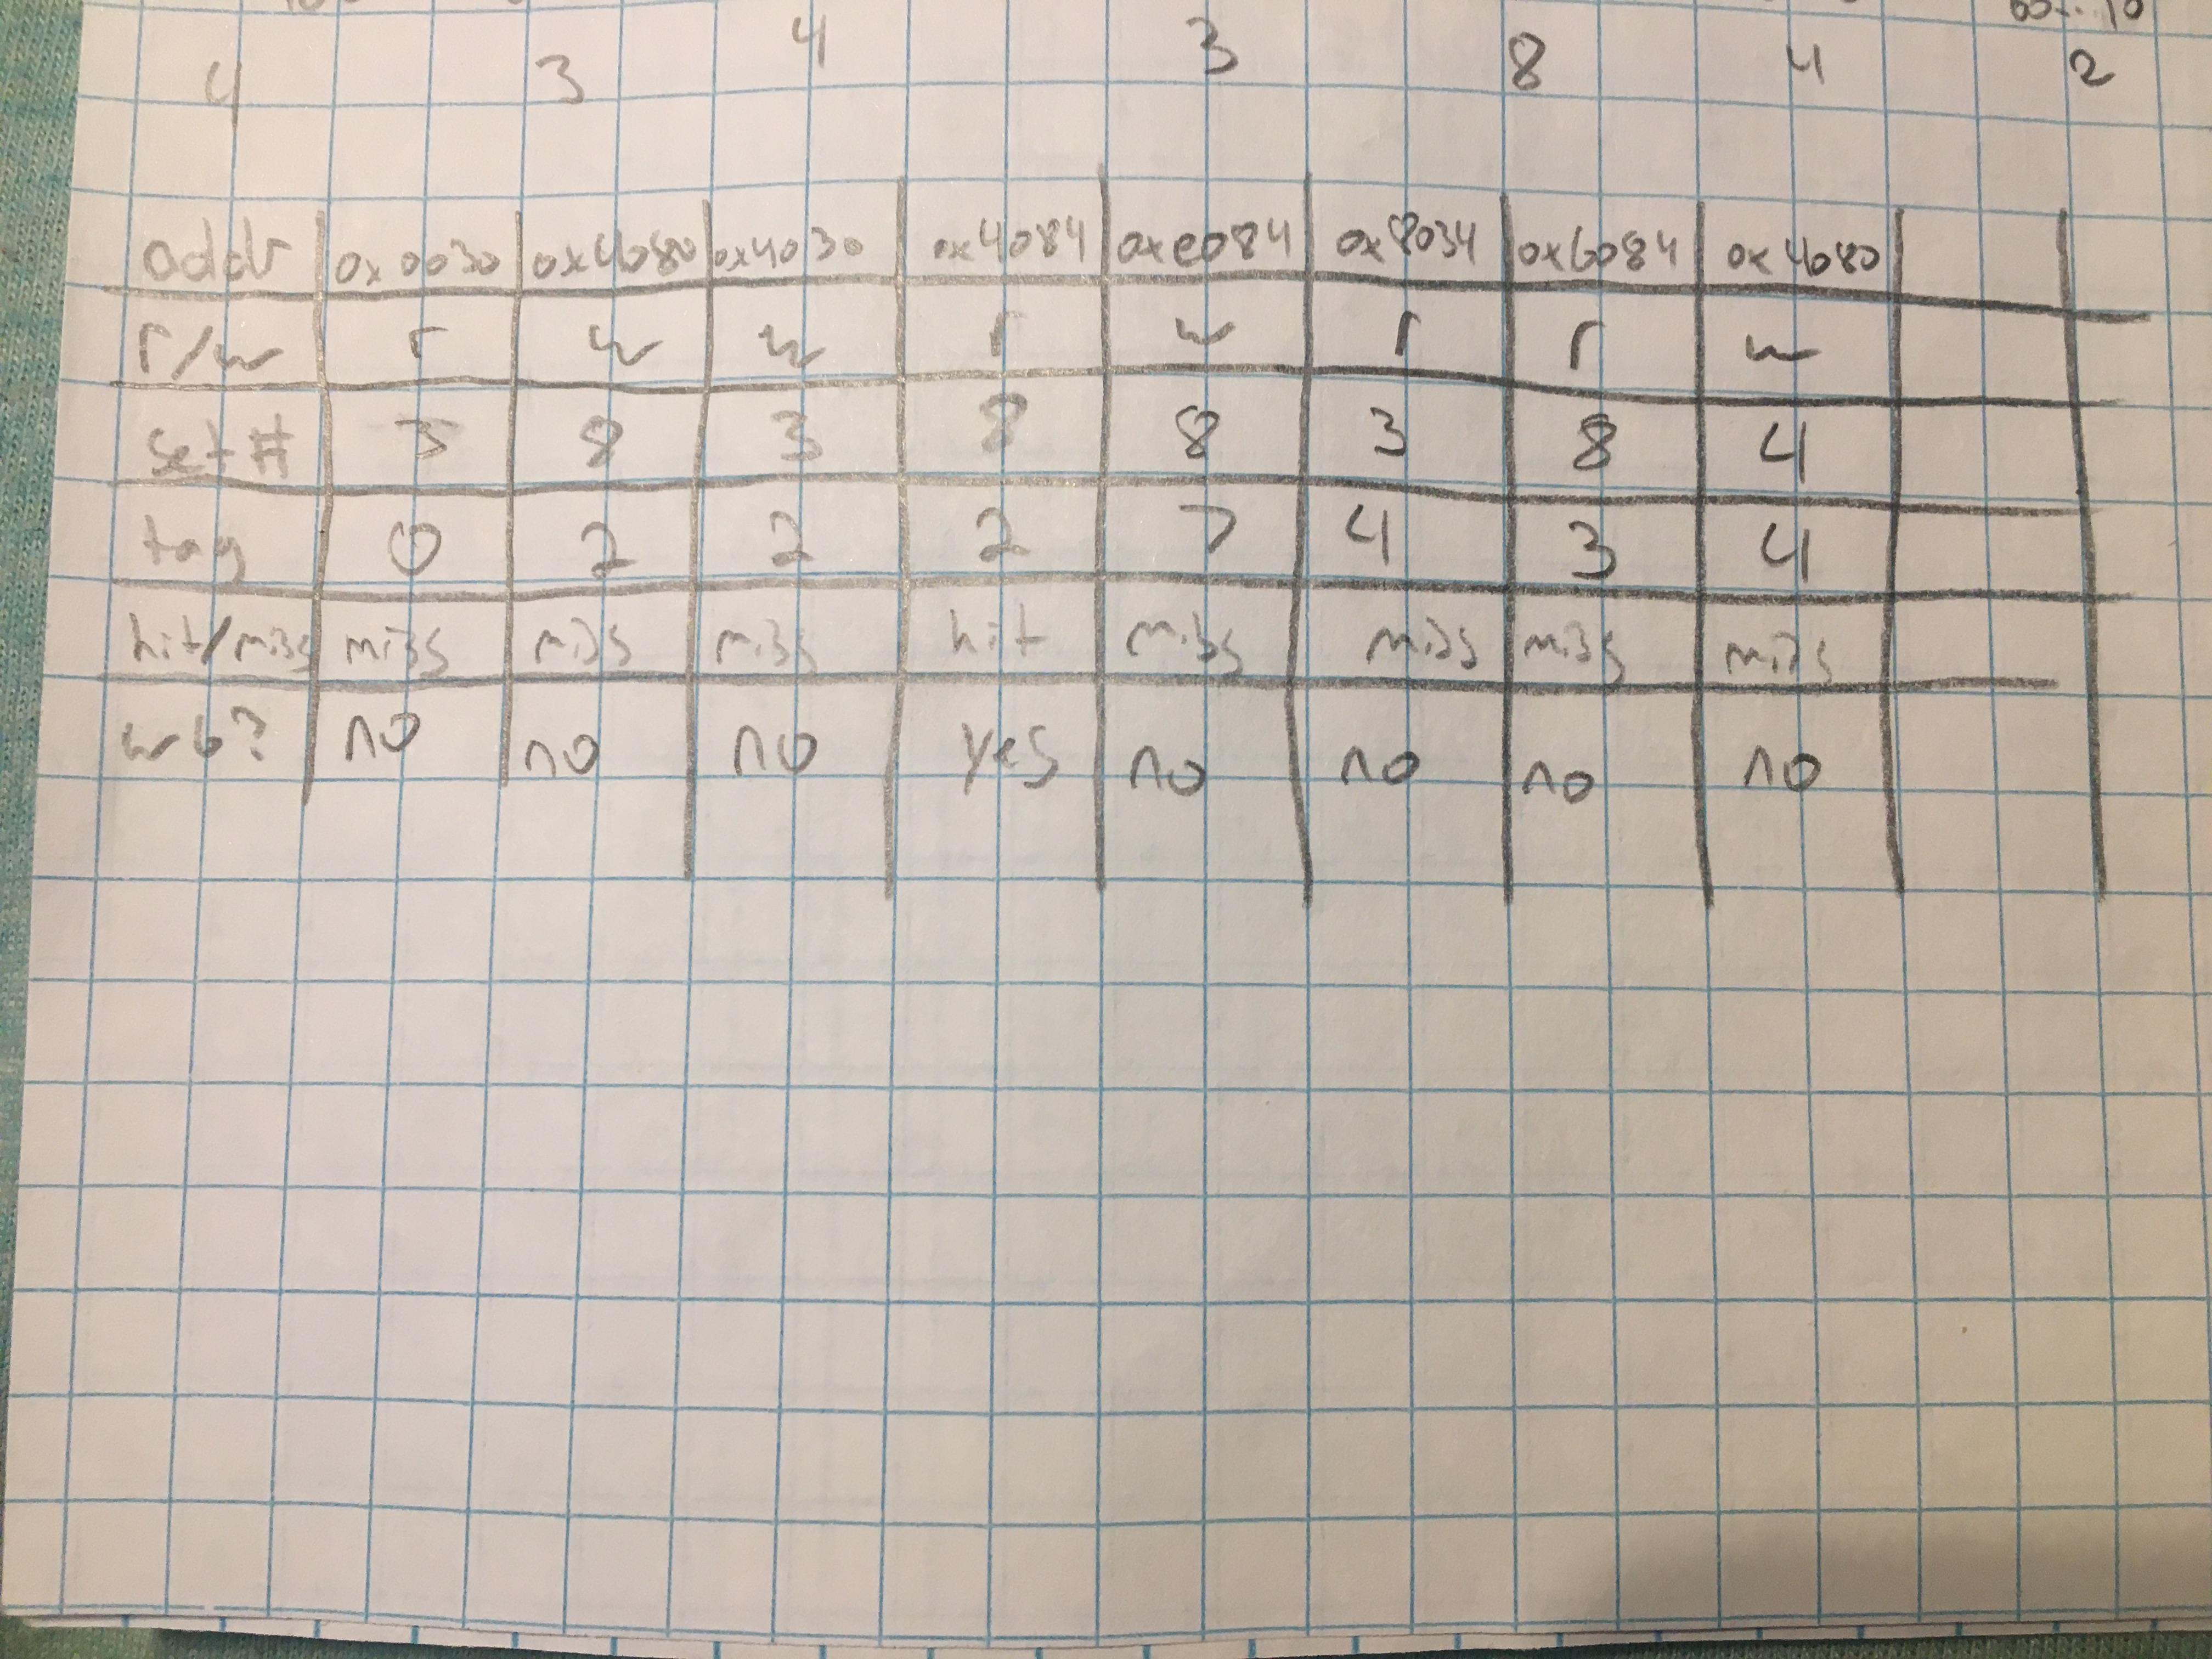 4 3 4 3 8 4 2
addr 0x0030 0x4680 0x4030 0x4084 0xe084 0x8034 0x6084 0x4680
r/w r w w r w r r w
set # 3 8 3 8 8 3 8 4
tag 0 2 2 2 7 4 3 4
hit/miss miss miss miss hit miss miss miss miss
wb? no no no yes no no no no